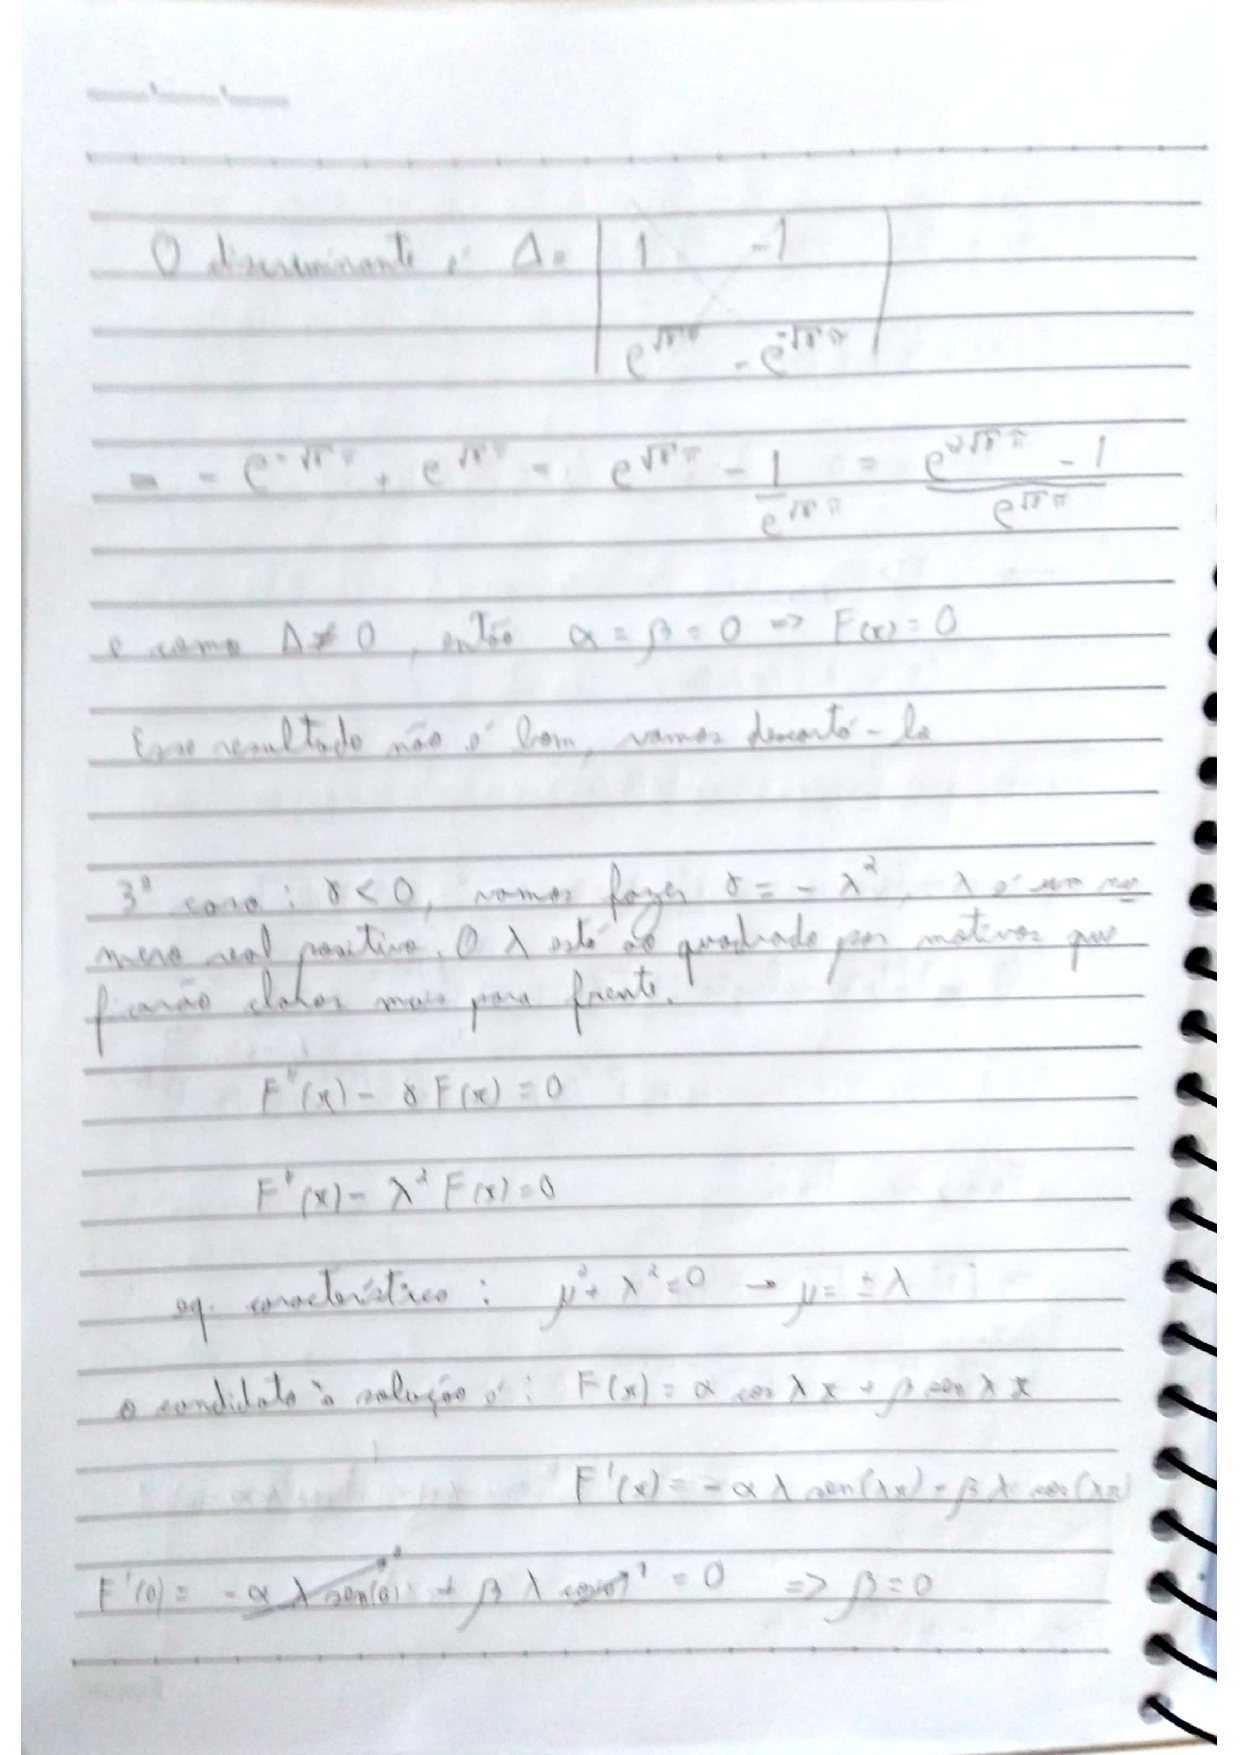 O discriminante é Δ = | 1 -1 |
| e^{√γ π} - e^{-√γ π} |
= - e^{-√γ π} + e^{√γ π} = e^{√γ π} - 1/e^{√γ π} = (e^{2√γ π} - 1)/e^{√γ π}
e como Δ ≠ 0, então α = β = 0 => F(x) = 0
Esse resultado não é bom, vamos descartá-lo
3º caso: γ < 0, vamos fazer γ = - λ², λ é um nú
mero real positivo. O λ está ao quadrado por motivos que
ficarão claros mais para frente.
F''(x) - γ F(x) = 0
F''(x) - λ² F(x) = 0
eq. característica: μ² + λ² = 0 → μ = ± λ
o candidato à solução é: F(x) = α cos λ x + β sen λ x
F'(x) = - α λ sen(λx) + β λ cos(λx)
F'(0) = - α λ sen(0)⁰ + β λ cos(0)¹ = 0 => β = 0